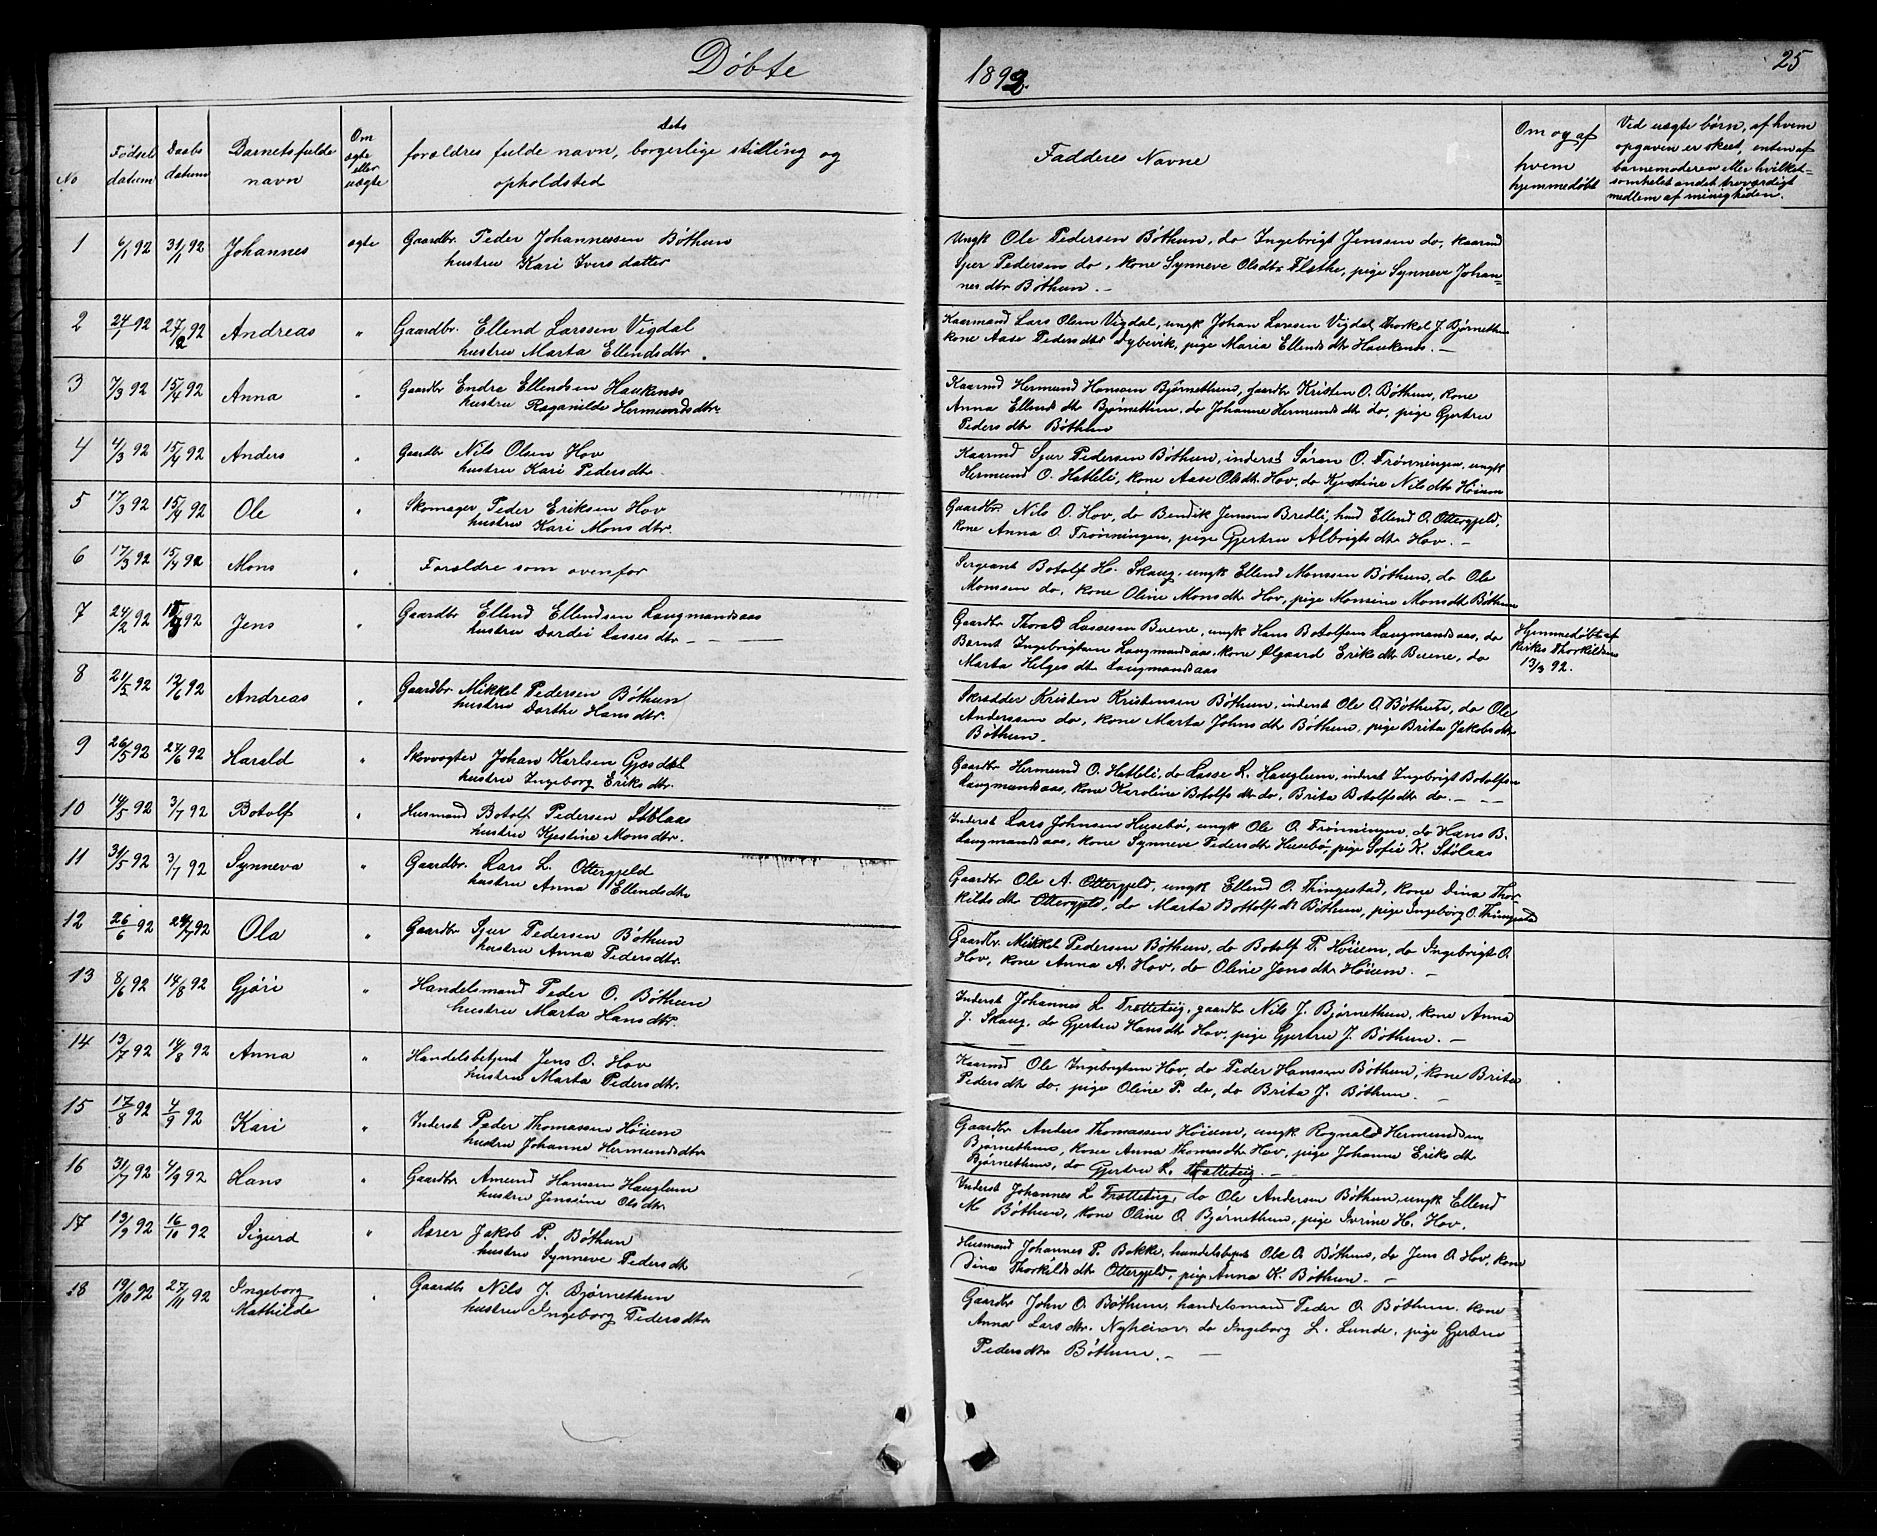 Døbte
1892.
25
No
Fødsel datum
Daabs datum
Barnets fulde navn
Om ægte eller uægte
Dets forældres fulde navn, borgerlige stilling og opholdsted
Fadderes Navne
Om og af hvem hjemmedøbt
Ved uægte børn, af hvem opgaven er skeet, enten af barnemoderen eller hvilket-somhelst andet troværdigt medlem af menigheden.
1 6/1 92 31/1 92 Johannes ægte Gaardbr. Peder Johannessen Bøthun
hustru Kari Iversdatter
Ungk Ole Pedersen Bøthun, do Ingebrigt Jensen do, kaarmd
Sjur Pedersen do, kone Synneve Olsdtr Flæthe, pige Synneve Johan=
nesdtr Bøthun. –
2 24/1 92 27/2 92 Andreas " Gaardbr. Ellend Larssen Vigdal
hustru Marta Ellendsdtr.
Kaarmand Lars Olsen Vigdal, ungk Johan Larssen Vigdal, Thorkel J. Bjørnethun
kone Aase Pedersdtr Dybevik, pige Maria Ellendsdtr Haukenes. –
3 7/3 92 15/4 92 Anna " Gaardbr Endre Ellendsen Haukenæs
hustru Raganilde Hermundsdtr.
Kaarmd Hermund Hansen Bjørnethun, gaardbr Kristen O. Bøthun, kone
Anna Ellendsdtr Bjørnethun, do Johanne Hermundsdtr do, pige Gjertru
Pedersdtr Bøthun
4 4/3 92 15/4 92 Anders " Gaardbr Nils Olsen Hov
hustru Kari Pedersdtr.
Kaarmd Sjur Pedersen Bøthun, inderst Søren O. Trønningen, ungk
Hermund O. Hatleli, kone Aase Olsdtr Hov, do Kjestine Nilsdtr Høium
5 17/3 92 15/4 92 Ole " Skomager, Peder Eriksen Hov
hustru Kari Monsdtr.
Gaardbr Nils O. Hov, do Bendik Jensen Bredli, husmd Ellend O. Ottergjeld,
kone Anna O. Trønningen, pige Gjertru Albrigtsdtr Hov. –
6 17/3 92 15/4 92 Mons " Forældre som ovenfor
Sergeant Botolf H. Skaug, ungk Ellend Monssen Bøthun, do Ole
Monssen do, kone Oline Monsdtr Hov, pige Monsine Monsdtr Bøthun
7 24/2 92 92 Jens " Gaardbr Ellend Ellendsen Laugmandsaas
hustru Dordei Lassesdtr – –
Gaardbr Thorald Lassesen Buene, ungk Hans Botolfsen Laugmandsaas, do
Bernt Ingebrigtsen Laugmandsaas, kone Ølgaard Eriksdtr Buene, do
Marta Helgesdtr Laugmandsaas
Hjemmedøbt af
Eriks Thorkildsen
13/3 92.
8 21/5 92 12/6 92 Andreas " Gaardbr Mikkel Pedersen Bøthun
hustru Dorthe Hansdtr.
Skrædder Kristen Kristensen Bøthun, inderst Ole O. Bøthun, do Ole
Anderssen do, kone Marta Johnsdtr Bøthun, pige Brita Jakobsdtr
Bøthun.
9 26/5 92 27/6 92 Harald " Skovvogter Johan Karlsen Gjesdal
hustru Ingeborg Eriksdtr.
Gaardbr Hermund O. Hatleli, do Lasse L. Hauglum, inderst Ingebrigt Botolfsen
Laugmandsaas, kone Karoline Botolfsdtr do, Brita Botolfsdtr do. – –
10 14/5 92 3/7 92 Botolf " Husmand Botolf Pedersen Stølaas
hustru Kjestine Monsdtr.
Inderst Lars Johnsen Husebø, ungk Ole O. Trønningen, do Hans B.
Laugmandsaas, kone Synneve Pedersdtr Husebø, pige Sofie K. Stølaas
11 31/5 92 3/7 92 Synneva " Gaardbr. Lars L. Ottergjeld
hustru Anna Ellendsdtr
Gaardbr Ole A. Ottergjeld, ungk Ellend O. Thingestad, kone Dina Thor-
kildsdtr Ottergjeld, do Marta Bottolfsdtr Bøthun, pige Ingeborg O. Thingestad
12 26/6 92 24/7 92 Ola " Gaardbr Sjur Pedersen Bøthun
hustru Anna Pedersdtr.
Gaardbr. Mikkel Pedersen Bøthun, do Botolf P. Høium, do Ingebrigt O.
Hov, kone Anna A. Hov, do Oline Jensdtr Høium. –
13 8/6 92 14/8 92 Gjøri " Handelsmand Peder O. Bøthun
hustru Marta Hansdtr.
Inderst Johannes L. Trætteteig, gaardbr Nils J. Bjørnethun, kone Anna
J. Skaug, do Gjertru Hansdtr Hov, pige Gjertru J. Bøthun. –
14 13/7 92 14/8 92 Anna " Handelsbetjent Jens O. Hov
hustru Marta Pedersdtr.
Kaarmd Ole Ingebrigtsen Hov, do Peder Hanssen Bøthun, kone Brita
Pedersdtr do, pige Oline P. do, do Brita J. Bøthun. –
15 17/8 92 4/9 92 Kari " Inderst Peder Thomassen Høium
hustru Johanne Hermundsdtr
Gaardbr Anders Thomassen Høium, ungk. Rognald Hermundsen
Bjørnethun, kone Anna Thomasdtr Hov, pige Johanne Eriksdtr
Bjørnethun, do Gjertru L. Trætteteig. –
16 31/7 92 4/9 92 Hans " Gaardbr Amund Hanssen Hauglum
hustru Jenssine Olsdtr
Inderst Johannes L Trætteteig, do Ole Andersen Bøthun, ungk Ellend
M Bøthun, kone Oline O Bjørnethun, pige Ivrine H. Hov.
17 13/9 92 16/10 92 Sigurd " Lærer Jakob P. Bøthun
hustru Synneve Pedersdtr
Husmand Johannes P. Bakke, handelsbetjent Ole O. Bøthun, do Jens O. Hov, kone
Dina Thorkildsdtr Ottergjeld, pige Anna K. Bøthun. –
18 19/10 92 27/11 92 Ingeborg Mathilde " Gaardbr Nils J. Bjørnethun
hustru Ingeborg Pedersdtr
Gaardbr John O. Bøthun, handelsmand Peder O. Bøthun, kone
Anna Larsdtr. Nyheim, do Ingeborg L. Lunde, pige Gjertru
Pedersdtr Bøthun. – –